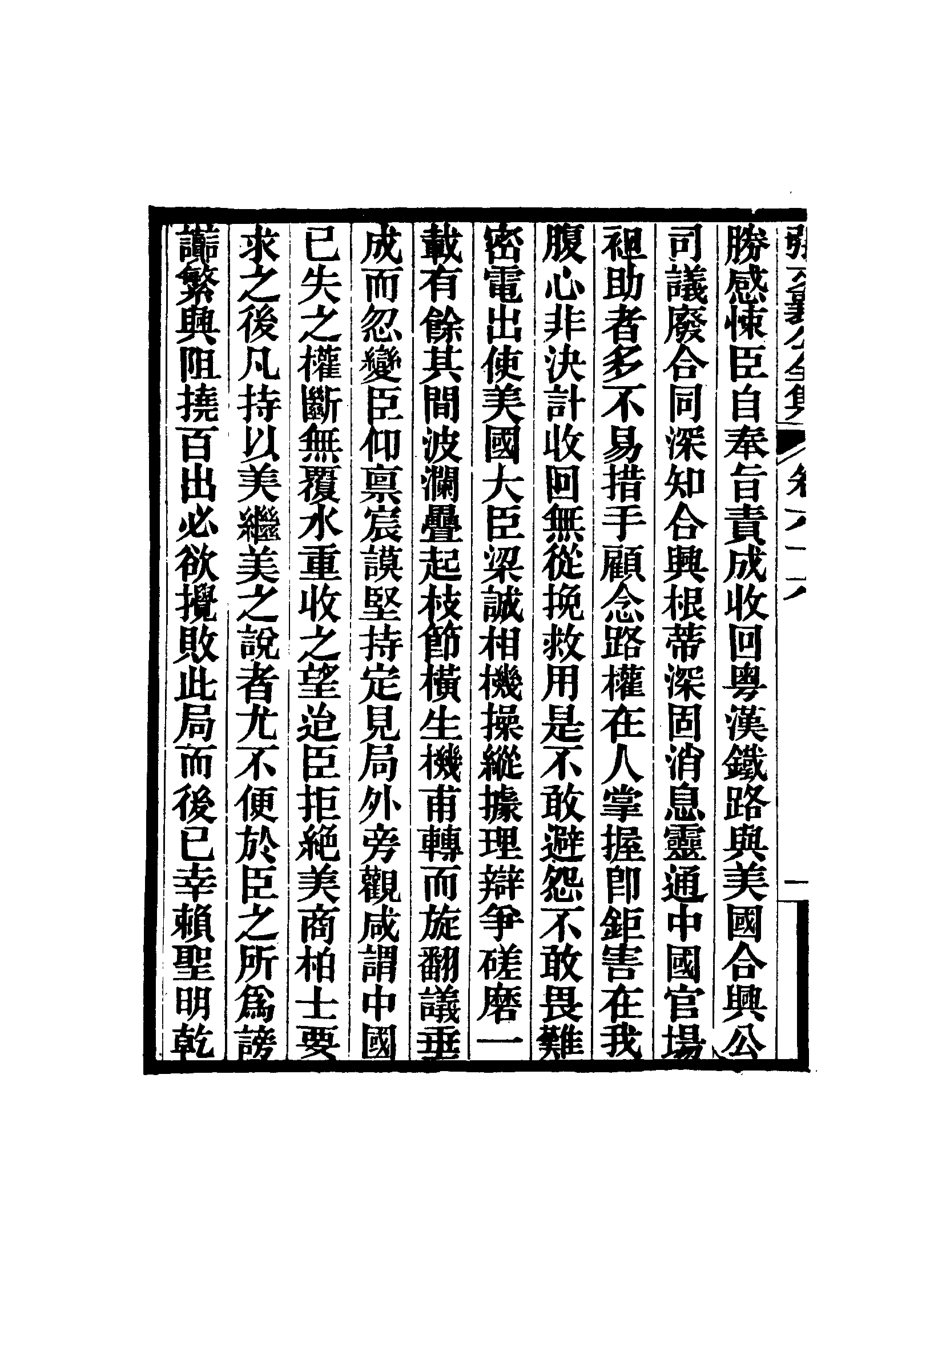 張文襄公全集 卷六十六 一
勝感悚臣自奉旨責成收回粵漢鐵路與美國合興公
司議廢合同深知合興根蒂深固消息靈通中國官場
袒助者多不易措手顧念路權在人掌握卽鉅害在我
腹心非決計收回無從挽救用是不敢避怨不敢畏難
密電出使美國大臣梁誠相機操縱據理辯爭磋磨一
載有餘其間波瀾疊起枝節橫生機甫轉而旋翻議垂
成而忽變臣仰禀宸謨堅持定見局外旁觀咸謂中國
已失之權斷無覆水重收之望迨臣拒絕美商柏士要
求之後凡持以美繼美之說者尤不便於臣之所爲謗
讟繁興阻撓百出必欲攪敗此局而後已幸賴聖明乾